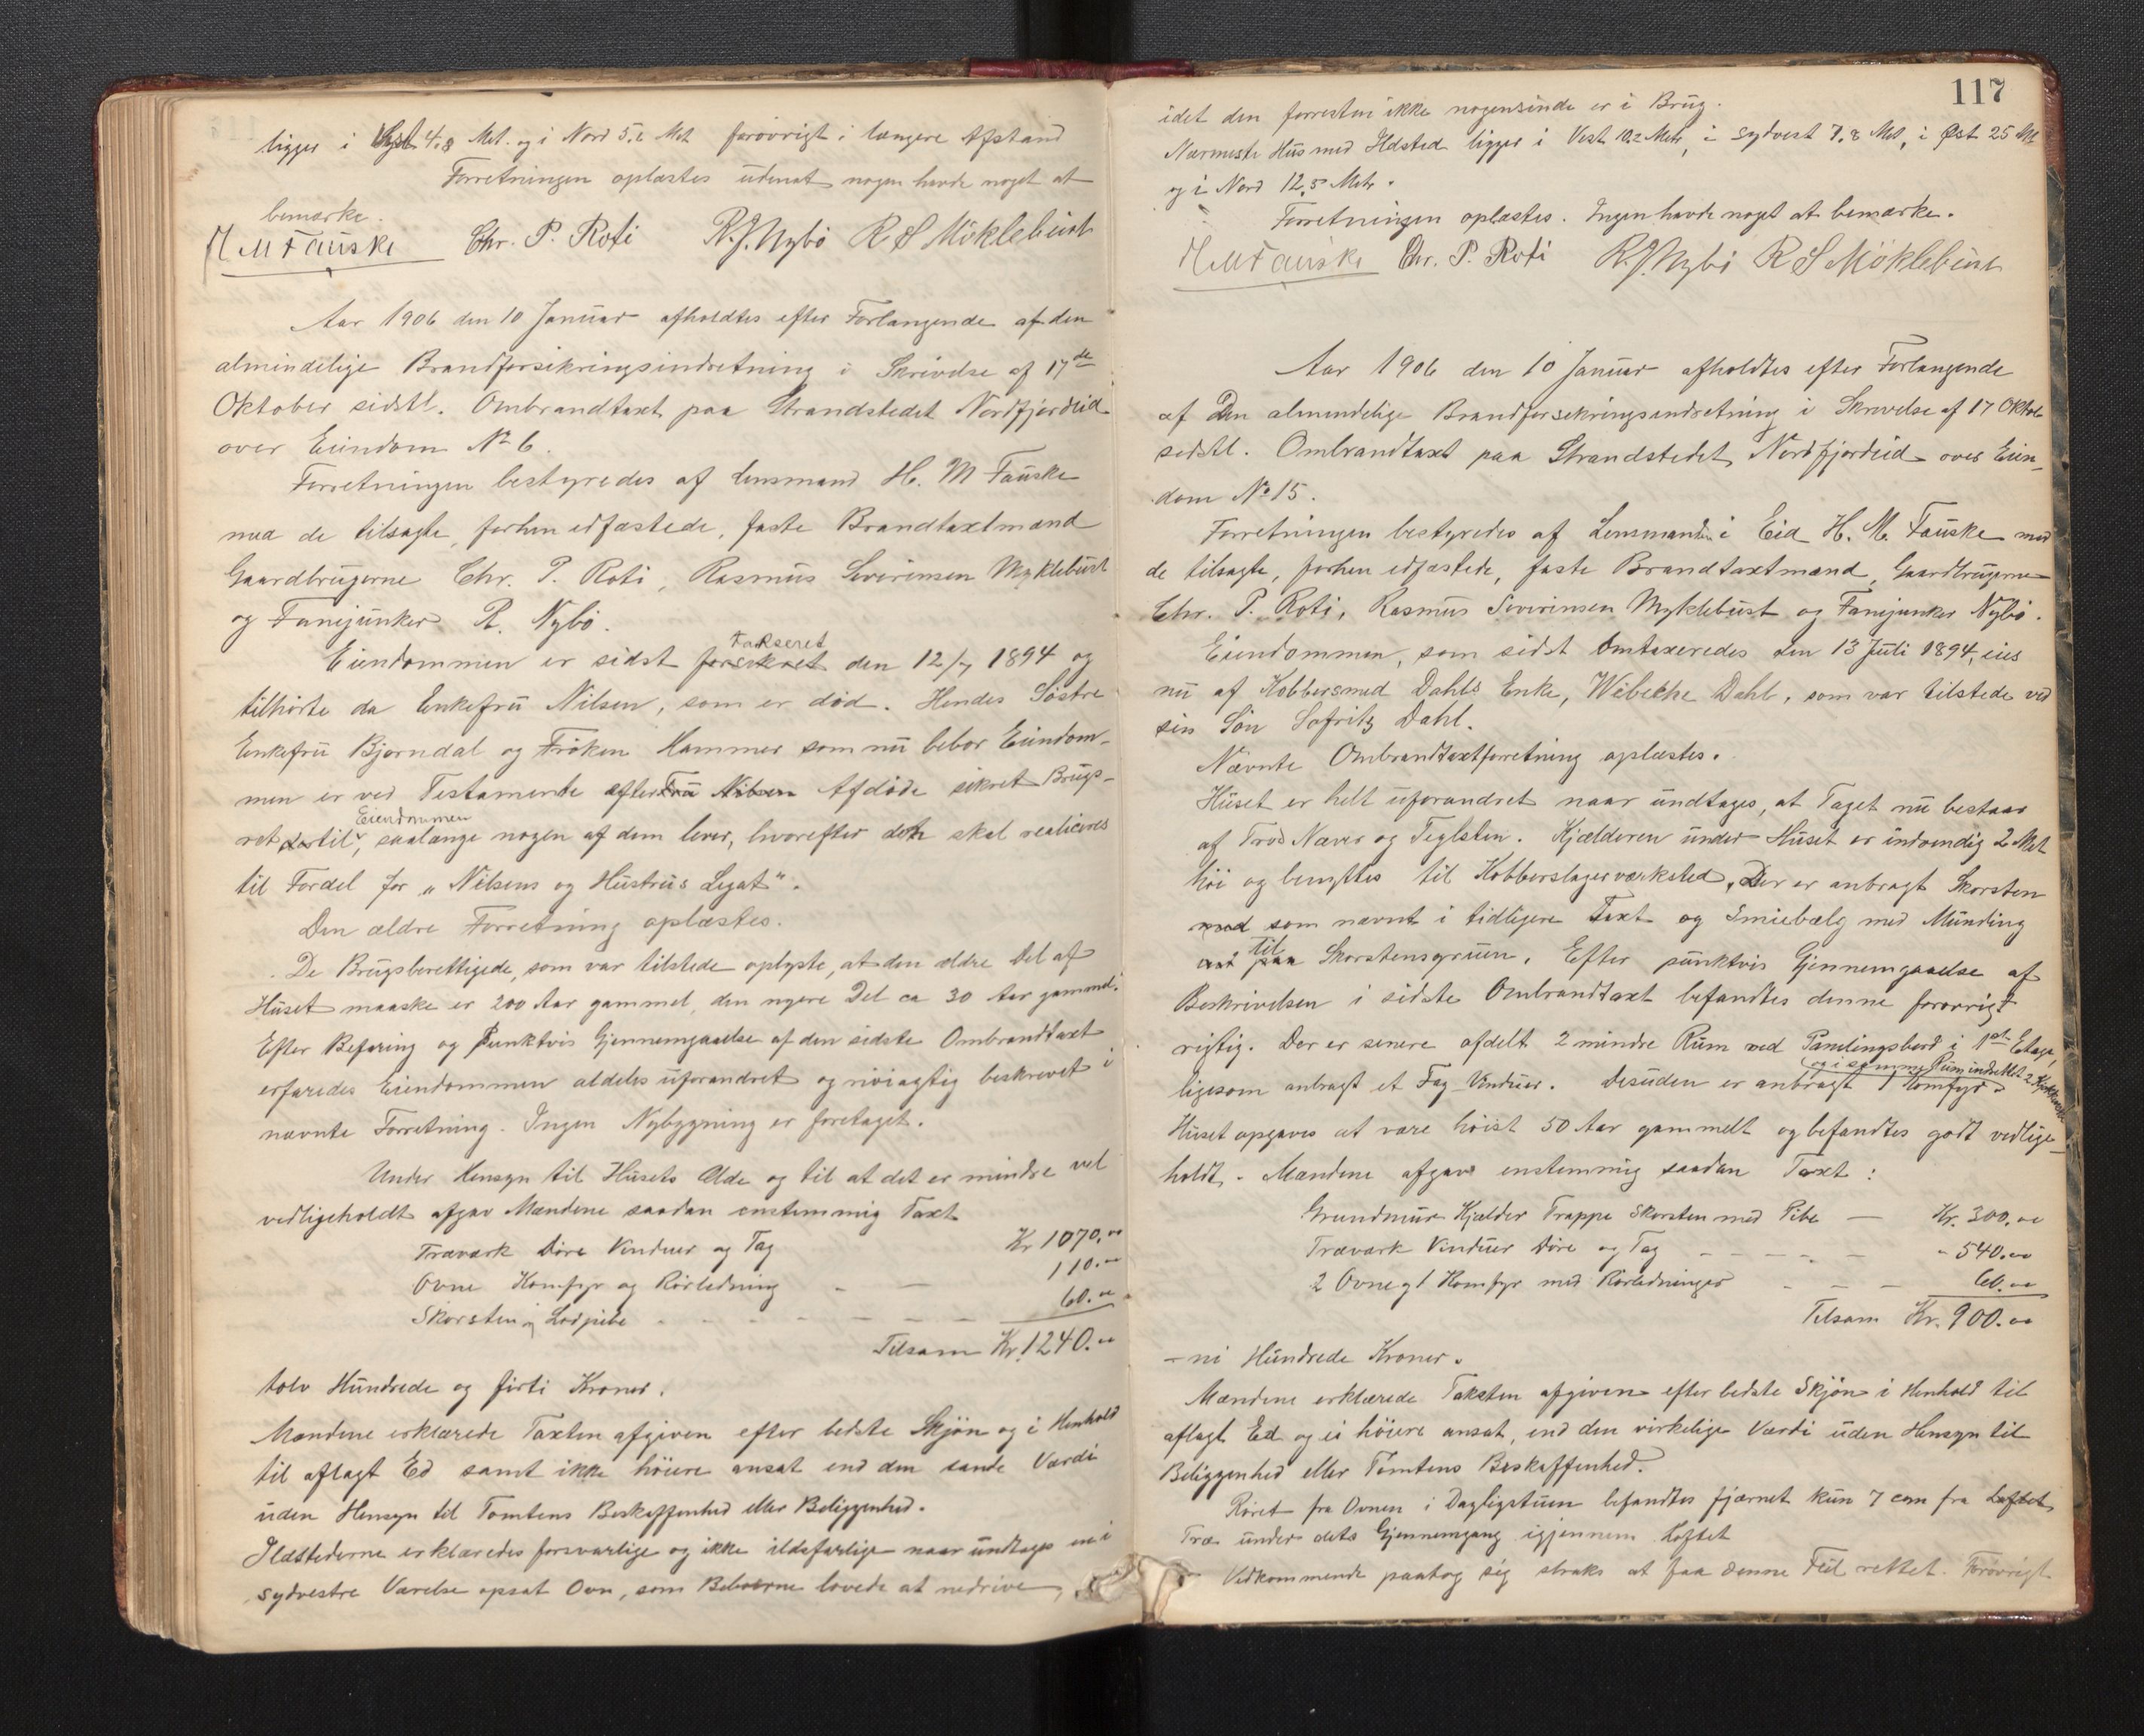 ligger i 4.8 Met. og i Nord 5.6 Met forøvrigt i længere Afstand
Forretningen oplæstes uden at nogen havde noget at
bemærke.
H M Fauske Chr. P. Roti R. J. Nybö R S Möklebust
Aar 1906 den 10 Januar afholdtes efter Forlangende af den
almindelige Brandforsikringsindretning i Skrivelse af 17de
Oktober sidstl. Ombrandtaxt paa Strandstedet Nordfjordeid
over Eiendom No 6.
Forretningen bestyredes af Lensmand H. M Fauske
med de tilsagte, forhen edfæstede, faste Brandtaxtmænd
Gaardbrugerne Chr. P. Roti, Rasmus Severinsen Myklebust
og Fanejunker R. Nybö.
takseret
Eiendommen er sidst forsikret den 12/7 1894 og
tilhörte da Enkefru Nilsen, som er död. Hendes Söstre
Enkefru Bjørndal og Fröken Hammer som nu bebor Eiendom-
men er ved Testamente efter Fru Nilsen Afdöde sikret Brugs-
Eiendommen
ret dertil, saalænge nogen af dem lever, hvorefter den skal realiceres
til Fordel for „Nilsens og Hustrus Legat".
Den ældre Forretning oplæstes.
De Brugsberettigede, som var tilstede oplyste, at den ældre Del af
Huset maaske er 200 Aar gammel, den nyere Del ca 30 Aar gammel.
Efter Befaring og Punktvis Gjennemgaaelse af den sidste Ombrandtaxt
erfaredes Eiendommen aldeles uforandret og nöiagtig beskrevet i
nævnte Forretning. Ingen Nybygning er foretaget.
Under Hensyn til Husets Ælde og til at det er mindre vel
vedligeholdt afgav Mændene saadan enstemmig Taxt
Træværk Döre Vinduer og Tag Kr 1070.00
Ovne Komfyr og Rörledning - - 110.00
Skorsten og Lodpibe - - - - - - - 60.00
Tilsam Kr. 1240.00
tolv Hundrede og firti Kroner.
Mændene erklærede Taxten afgiven efter bedste Skjön og i Henhold
til aflagt Ed samt ikke höiere ansat end den sande Værdi
uden Hensyn til Tomtens Beskaffenhed eller Beliggenhed.
Ildstederne erklæredes forsvarlige og ikke ildsfarlige naar undtages en i
sydvestre Værelse opsat Ovn, som Beboerne lovede at nedrive
117
idet den forresten ikke nogensinde er i Brug.
Nærmeste Hus med Ildsted ligger i Vest 10.2 Metr, i sydvest 7.8 Met, i Øst 25 Mt
og i Nord 12.5 Metr.
Forretningen oplæstes. Ingen havde noget at bemærke.
H M Fauske Chr. P. Roti R. J. Nybö R S Möklebust
Aar 1906 den 10 Januar afholdtes efter Forlangende
af Den almindelige Brandforsikringsindretning i Skrivelse af 17 Oktob
sidstl. Ombrandtaxt paa Strandstedet Nordfjordeid over Eien-
dom No 15.
Forretningen bestyredes af Lensmanden i Eid H. M. Fauske med
de tilsagte, forhen edfæstede, faste Brandtaxtmænd, Gaardbrugerne
Chr. P. Roti, Rasmus Severinsen Myklebust og Fanejunker Nybö.
Eiendommen, som sidst Omtaxeredes den 13 Juli 1894, eies
nu af Kobbersmed Dahls Enke, Wibeche Dahl, som var tilstede ved
sin Sön Sofritz Dahl.
Nævnte Ombrandtaxtforretning oplæstes.
Huset er helt uforandret naar undtages, at Taget nu bestaar
af Trod Næver og Teglsten. Kjælderen under Huset er indvendig 2 Met
höi og benyttes til Kobberslagerværksted. Der er anbragt Skorsten
med som nævnt i tidligere Taxt og Smiebælg med Munding
til
ud paa Skorstensgruen. Efter punktvis Gjennemgaaelse af
Beskrivelsen i sidste Ombrandtaxt befandtes denne forøvrigt
rigtig. Der er senere afdelt 2 mindre Rum ved Panelingsbord i 1ste Etage,
og i samme Rum indsattet 2
ligesom anbragt et Fag Vinduer. Desuden er anbragt 1 Komfyr.
Huset opgaves at være höist 50 Aar gammelt og befandtes godt vedlige-
holdt. Mændene afgav enstemmig saadan Taxt:
Grundmur Kjælder Trappe Skorsten med Pibe — Kr. 300.00
Træværk Vinduer Döre og Tag - - - - - - 540.00
2 Ovne og 1 Komfyr med Rörledninger - - - 60.00
Tilsam Kr. 900.00
- ni Hundrede Kroner.
Mændene erklærede Taksten afgiven efter bedste Skjön i Henhold til
aflagt Ed og ei höiere ansat, end den virkelige Værdi uden Hensyn til
Beliggenhed eller Tomtens Beskaffenhed.
Röret fra Ovnen i Dagligstuen befandtes fjærnet kun 7 cm fra Loftet
Træ under dets Gjennemgang igjennem Loftet
Vedkommende paatog sig straks at faa denne Feil rettet. Forøvrigt